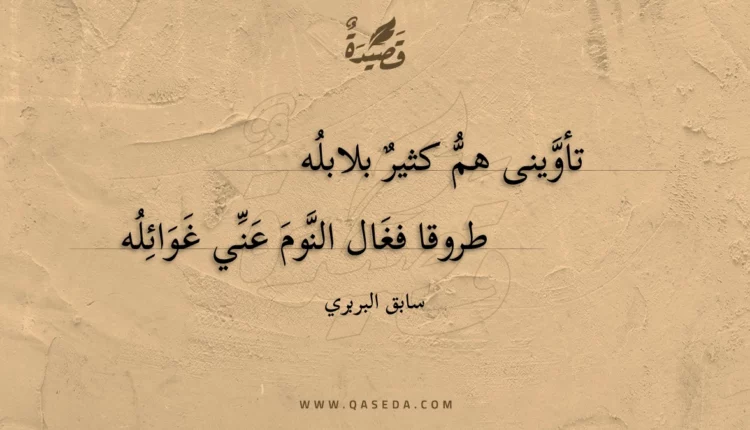 قَصِيدَةٌ
تأوَّينى همُّ كثيرٌ بلابلُه
طروقا فغَال النَّومَ عَنِّي غَوَائِلُه
سابق البربري
WWW.QASEDA.COM